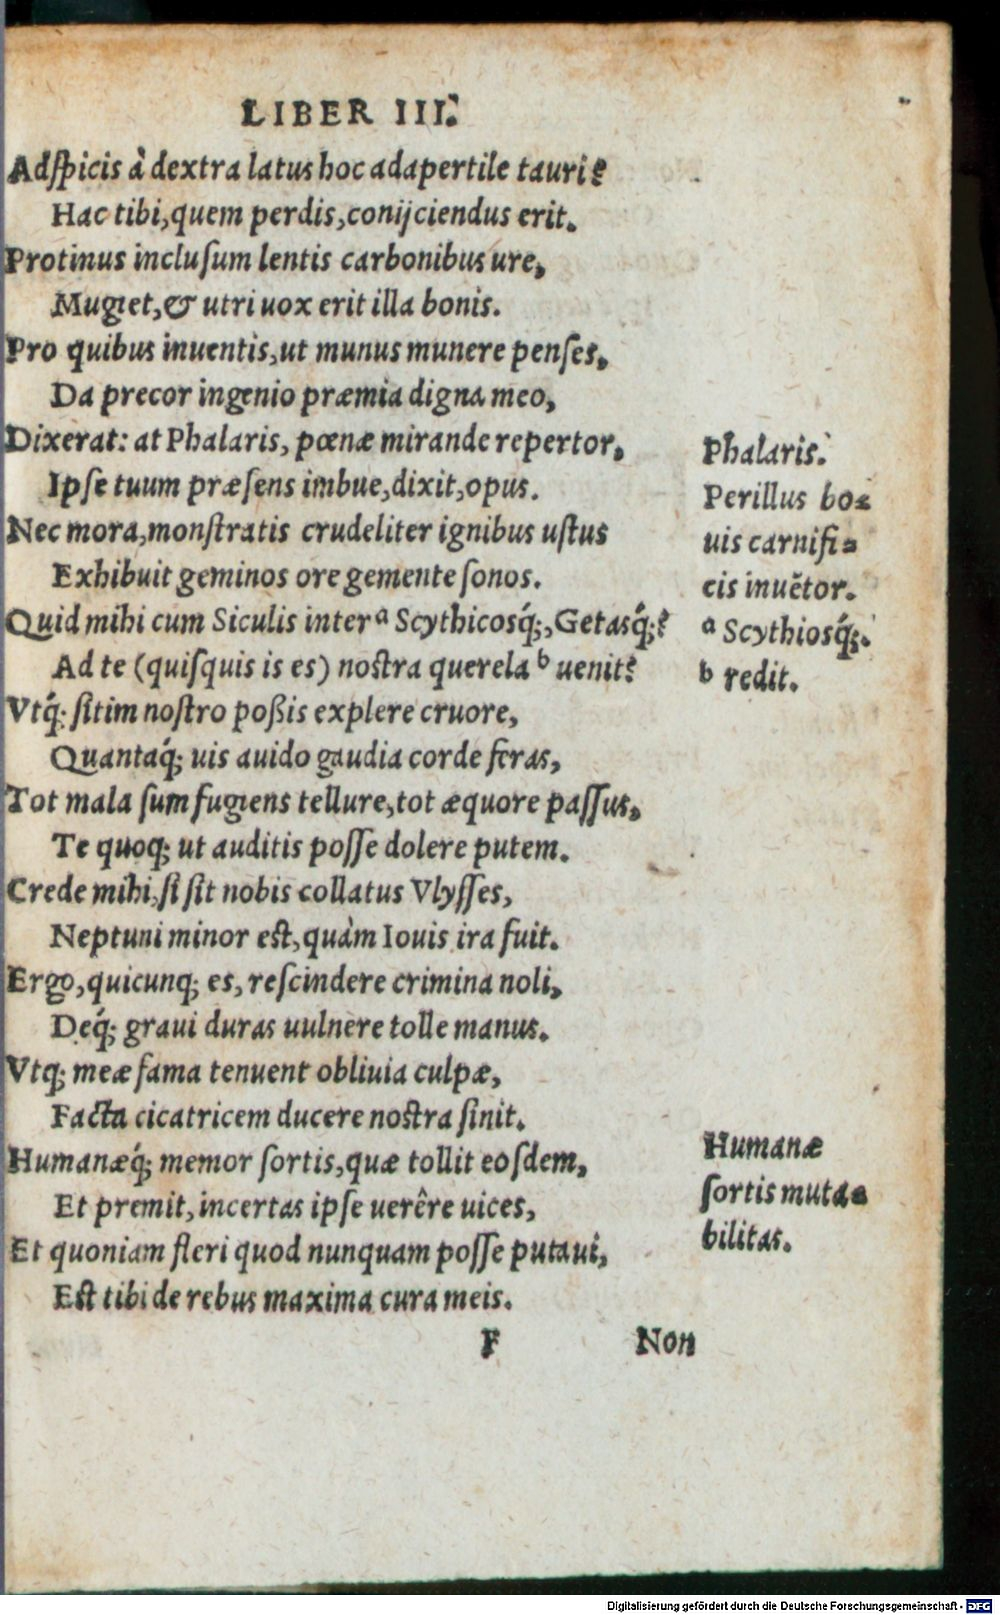 LIBER III.
Adſpicis à dextra latus hoc adapertile tauri?
Hac tibi, quem perdis, conijciendus erit.
Protinus incluſum lentis carbonibus ure,
Mugiet, & utri uox erit illa bonis.
Pro quibus inuentis, ut munus munere penſes,
Da precor ingenio præmia digna meo,
Dixerat: at Phalaris, pœnæ mirande repertor,
Ipſe tuum præſens imbue, dixit, opus.
Nec mora, monſtratis crudeliter ignibus uſtus
Exhibuit geminos ore gemente ſonos.
Quid mihi cum Siculis inter ᵃ Scythicosq́;, Getasq́;?
Ad te (quiſquis is es) noſtra querela ᵇ uenit?
Vtq́; ſitim noſtro poßis explere cruore,
Quantaq́; uis auido gaudia corde feras,
Tot mala ſum fugiens tellure, tot æquore paſſus,
Te quoq; ut auditis poſſe dolere putem.
Crede mihi, ſi ſit nobis collatus Vlyſſes,
Neptuni minor eſt, quàm Iouis ira fuit.
Ergo, quicunq; es, reſcindere crimina noli,
Deq́; graui duras uulnere tolle manus.
Vtq; meæ fama tenuent obliuia culpæ,
Facta cicatricem ducere noſtra ſinit.
Humanæq́; memor ſortis, quæ tollit eoſdem,
Et premit, incertas ipſe uerêre uices,
Et quoniam fieri quod nunquam poſſe putaui,
Eſt tibi de rebus maxima cura meis.
F Non
Phalaris.
Perillus bo-
uis carnifi-
cis inuẽtor.
ᵃ Scythiosq́;.
ᵇ redit.
Humanæ
ſortis muta-
bilitas.
Digitalisierung gefördert durch die Deutsche Forschungsgemeinschaft - DFG